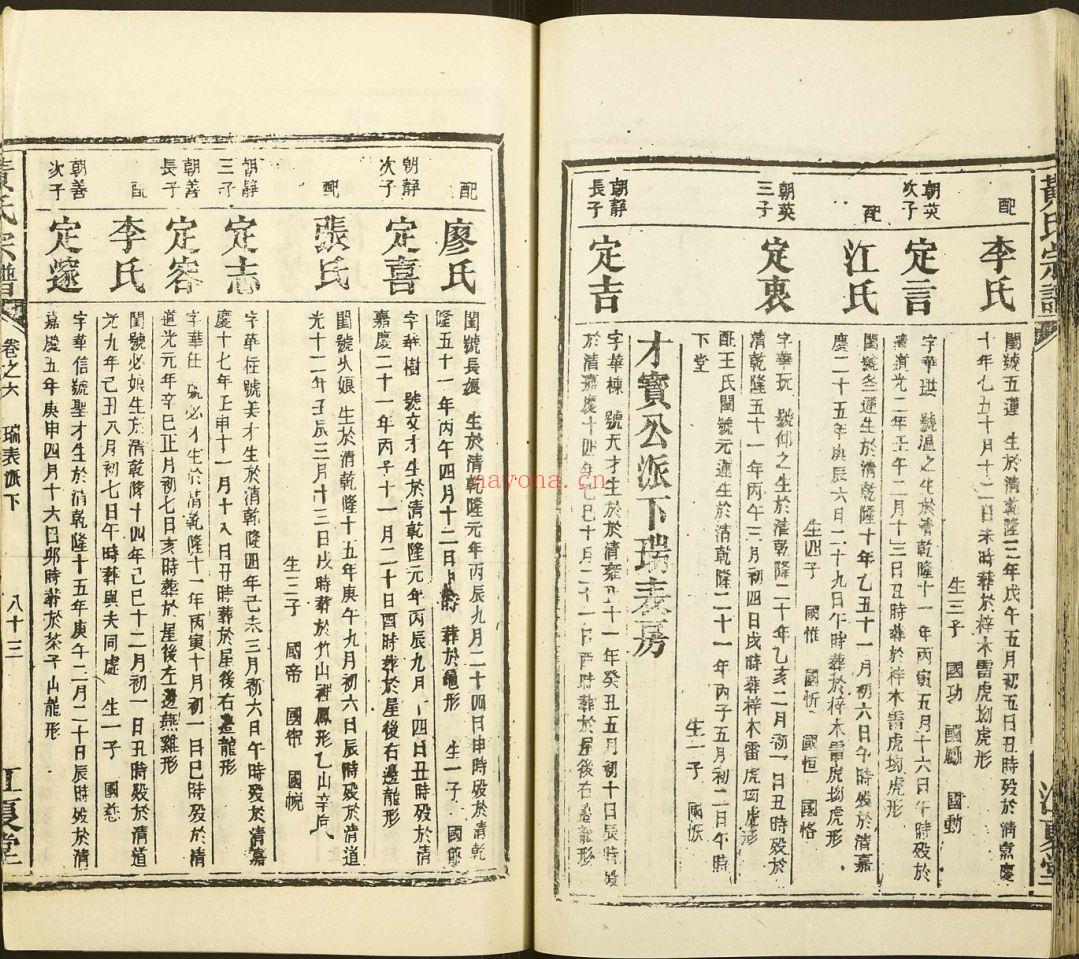 黃氏宗譜
江夏堂
配
李氏
閨號五蓮 生於清乾隆三年戊午五月初五日丑時歿於清嘉慶
十年乙丑十月十二日未時葬於梓木雷虎坳虎形
生三子 國功 國勳 國動
朝英
次子
定言
字華珙 號温之生於清乾隆十 年丙寅五月十六日午時歿於
清道光二年壬午二月十三日丑時葬於梓木雷虎坳虎形
配
江氏
閨號冬蓮生於清乾隆十年乙丑十一月初六日午時歿於清嘉
慶二十五年庚辰六月二十九日午時葬於梓木雷虎坳虎形
生四子 國惟 國忻 國恒 國恪
朝英
三子
定衷
字華玩 號仰之生於清乾隆二十年乙亥二月初一日丑時歿於
清乾隆五十一年丙午三月初四日戌時葬梓木雷虎坳虎形
配王氏閨號元蓮生於清乾隆二十一年丙子五月初二日午時
下堂
生一子 國恢
才寶公派下瑞表房
朝靜
長子
定吉
字華棟 號天才生於於清雍正十一年癸丑五月初十日辰時歿
於清嘉慶十四年己巳十月二十一日酉時葬於屋後右邊龍形
配
廖氏
閨號長娘 生於清乾隆元年丙辰九月二十四日申時歿於清乾
隆五十一年丙午四月十二日 時 葬於龜形 生一子 國節
朝靜
次子
定喜
字華樹 號文才生於清乾隆元年丙辰九月 四日丑時歿於清
嘉慶二十一年丙子十一月二十日酉時葬於屋後右邊龍形
配
張氏
閨號火娘 生於清乾隆十五年庚午九月初六日辰時歿於清道
光十二年壬辰三月十三日戌時葬於竹山裡鳳形乙山辛向
生三子 國帝 國常 國悅
朝靜
三子
定志
字華在號美才生於清乾隆四年己未三月初六日午時歿於清嘉
慶十七年壬申十一月十八日丑時葬於屋後右邊龍形
朝善
長子
定容
字華仕 號必才生於清乾隆十一年丙寅十月初一日巳時歿於清
道光元年辛巳正月初七日亥時葬於屋後左邊燕雞形
配
李氏
閨號必娘生於清乾隆十四年己巳十二月初一日丑時歿於清道
光九年己丑八月初七日午時葬與夫同處 生一子 國慈
朝善
次子
定邃
字華信號聖才生於清乾隆十五年庚午二月二十日辰時歿於清
嘉慶五年庚申四月十六日卯時葬於茶子山龍形
黃氏宗譜
卷之六 瑞表派下
八十三
江夏堂
nayona.cn